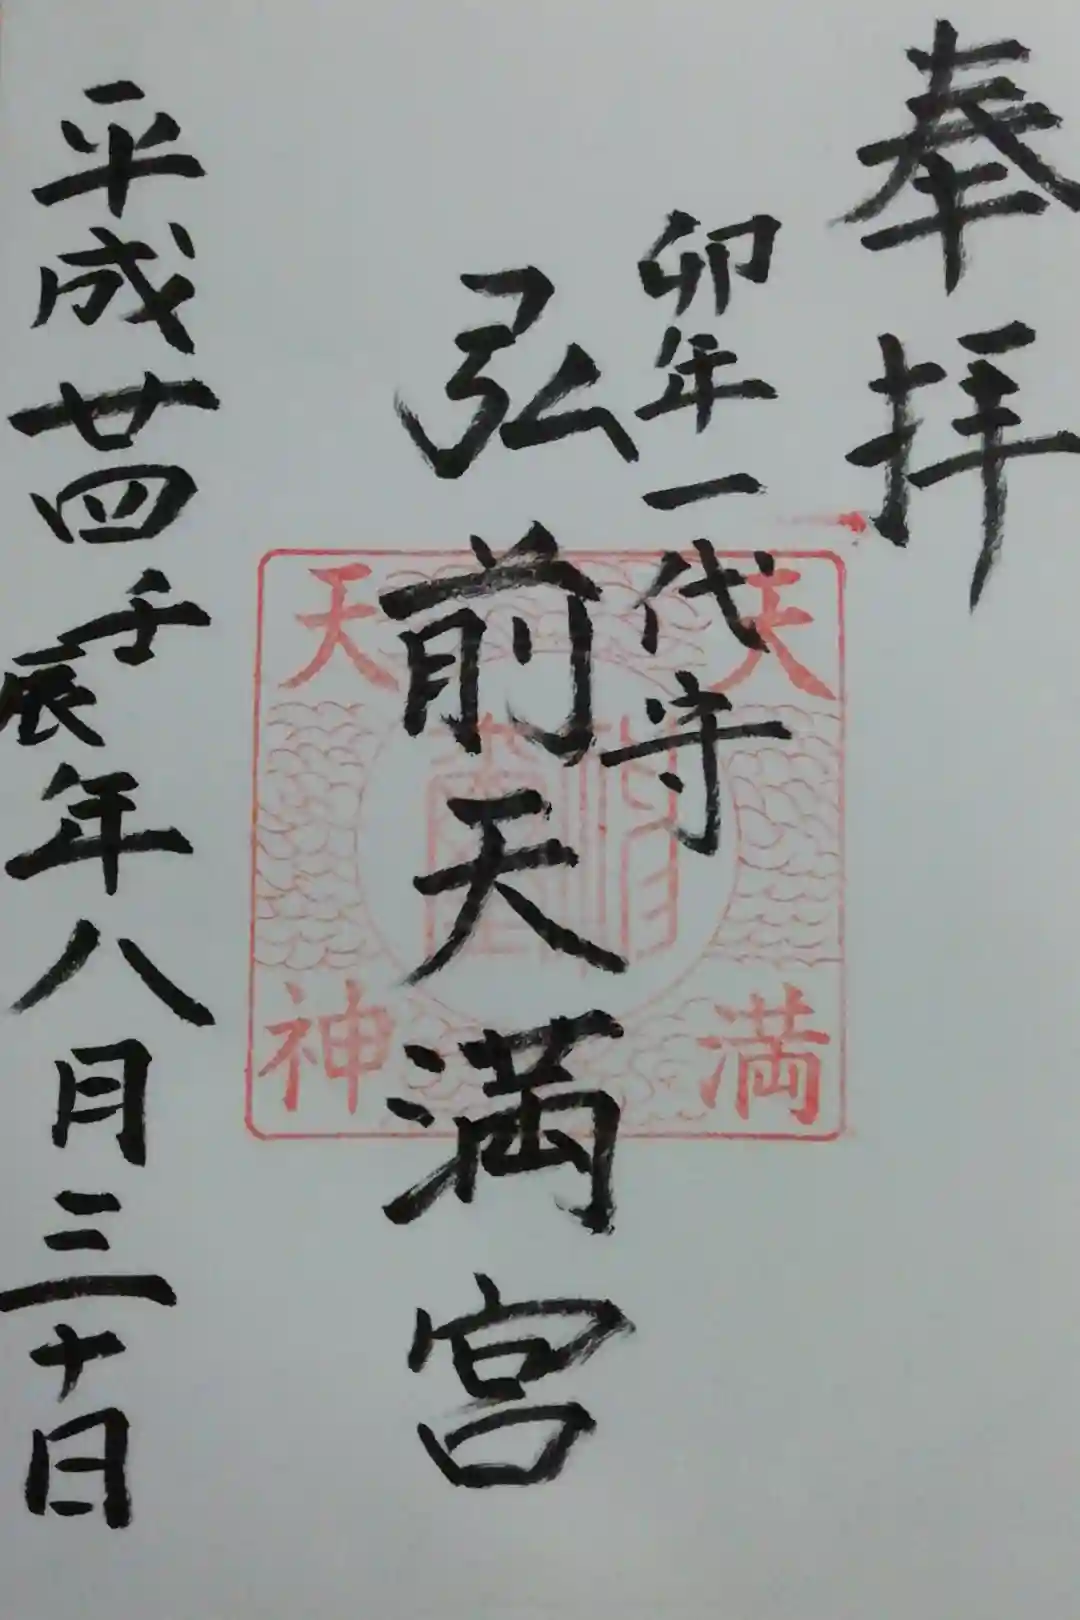 奉拝
卯年一代守
弘前天満宮
平成廿四壬辰年八月三十日
天満
天神